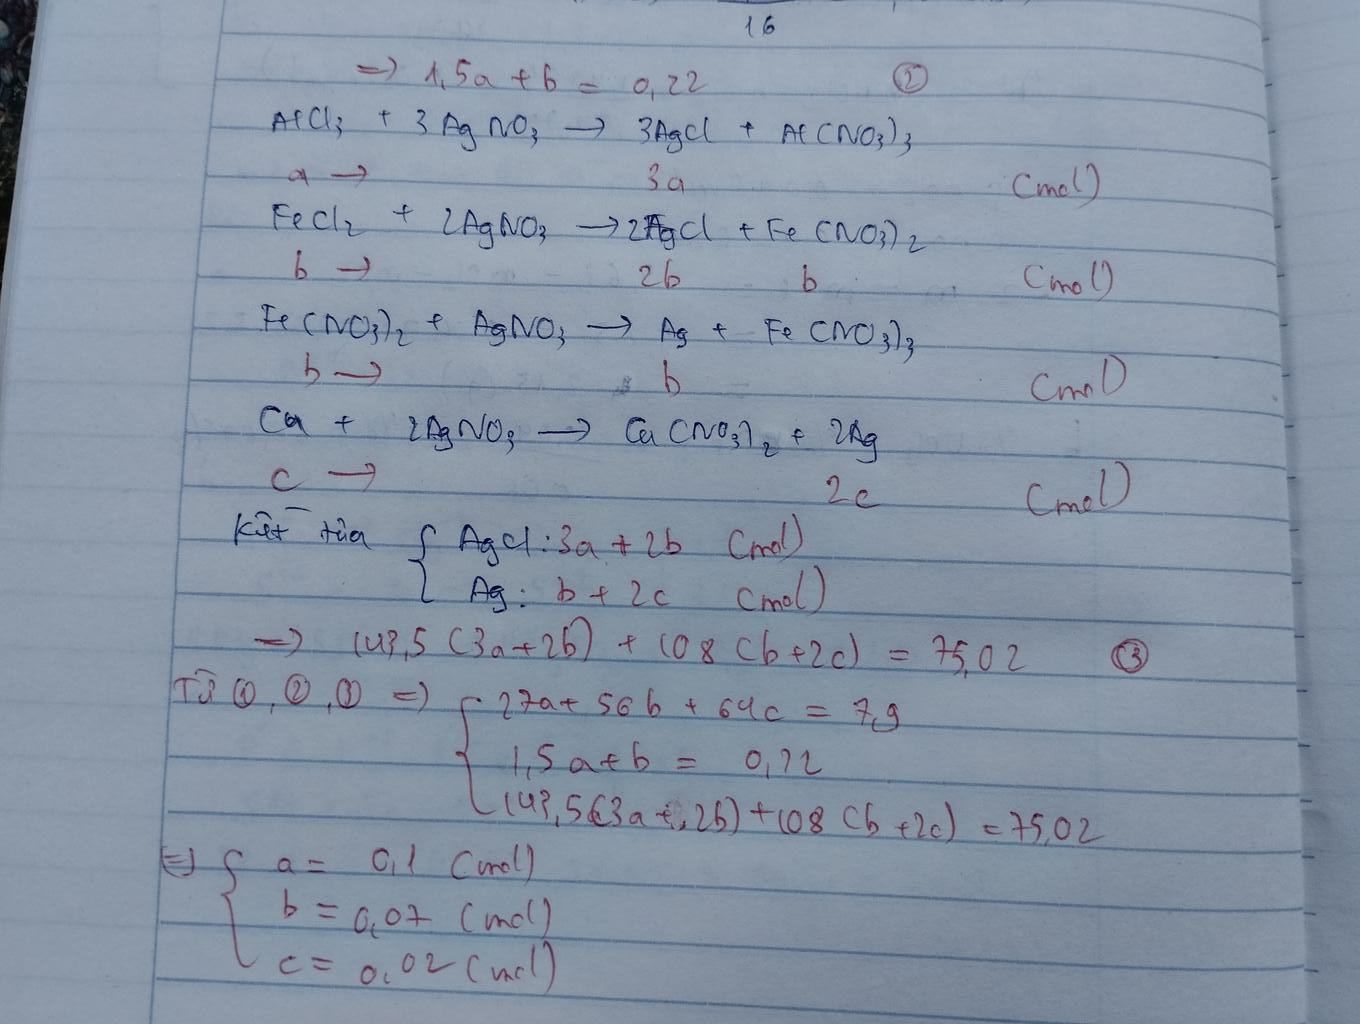 16
=> 1,5a + b = 0,22 ②
AlCl₃ + 3AgNO₃ → 3AgCl + Al(NO₃)₃
a → 3a (mol)
FeCl₂ + 2AgNO₃ → 2AgCl + Fe(NO₃)₂
b → 2b b (mol)
Fe(NO₃)₂ + AgNO₃ → Ag + Fe(NO₃)₃
b → b (mol)
Cu + 2AgNO₃ → Cu(NO₃)₂ + 2Ag
c → 2c (mol)
Kết tủa { AgCl: 3a + 2b (mol)
Ag: b + 2c (mol)
=> 143,5(3a+2b) + 108(b+2c) = 75,02 ③
Từ ①, ②, ③ => { 27a + 56b + 64c = 7,9
1,5a + b = 0,22
143,5(3a + 2b) + 108(b + 2c) = 75,02
=> { a = 0,1 (mol)
b = 0,07 (mol)
c = 0,02 (mol)